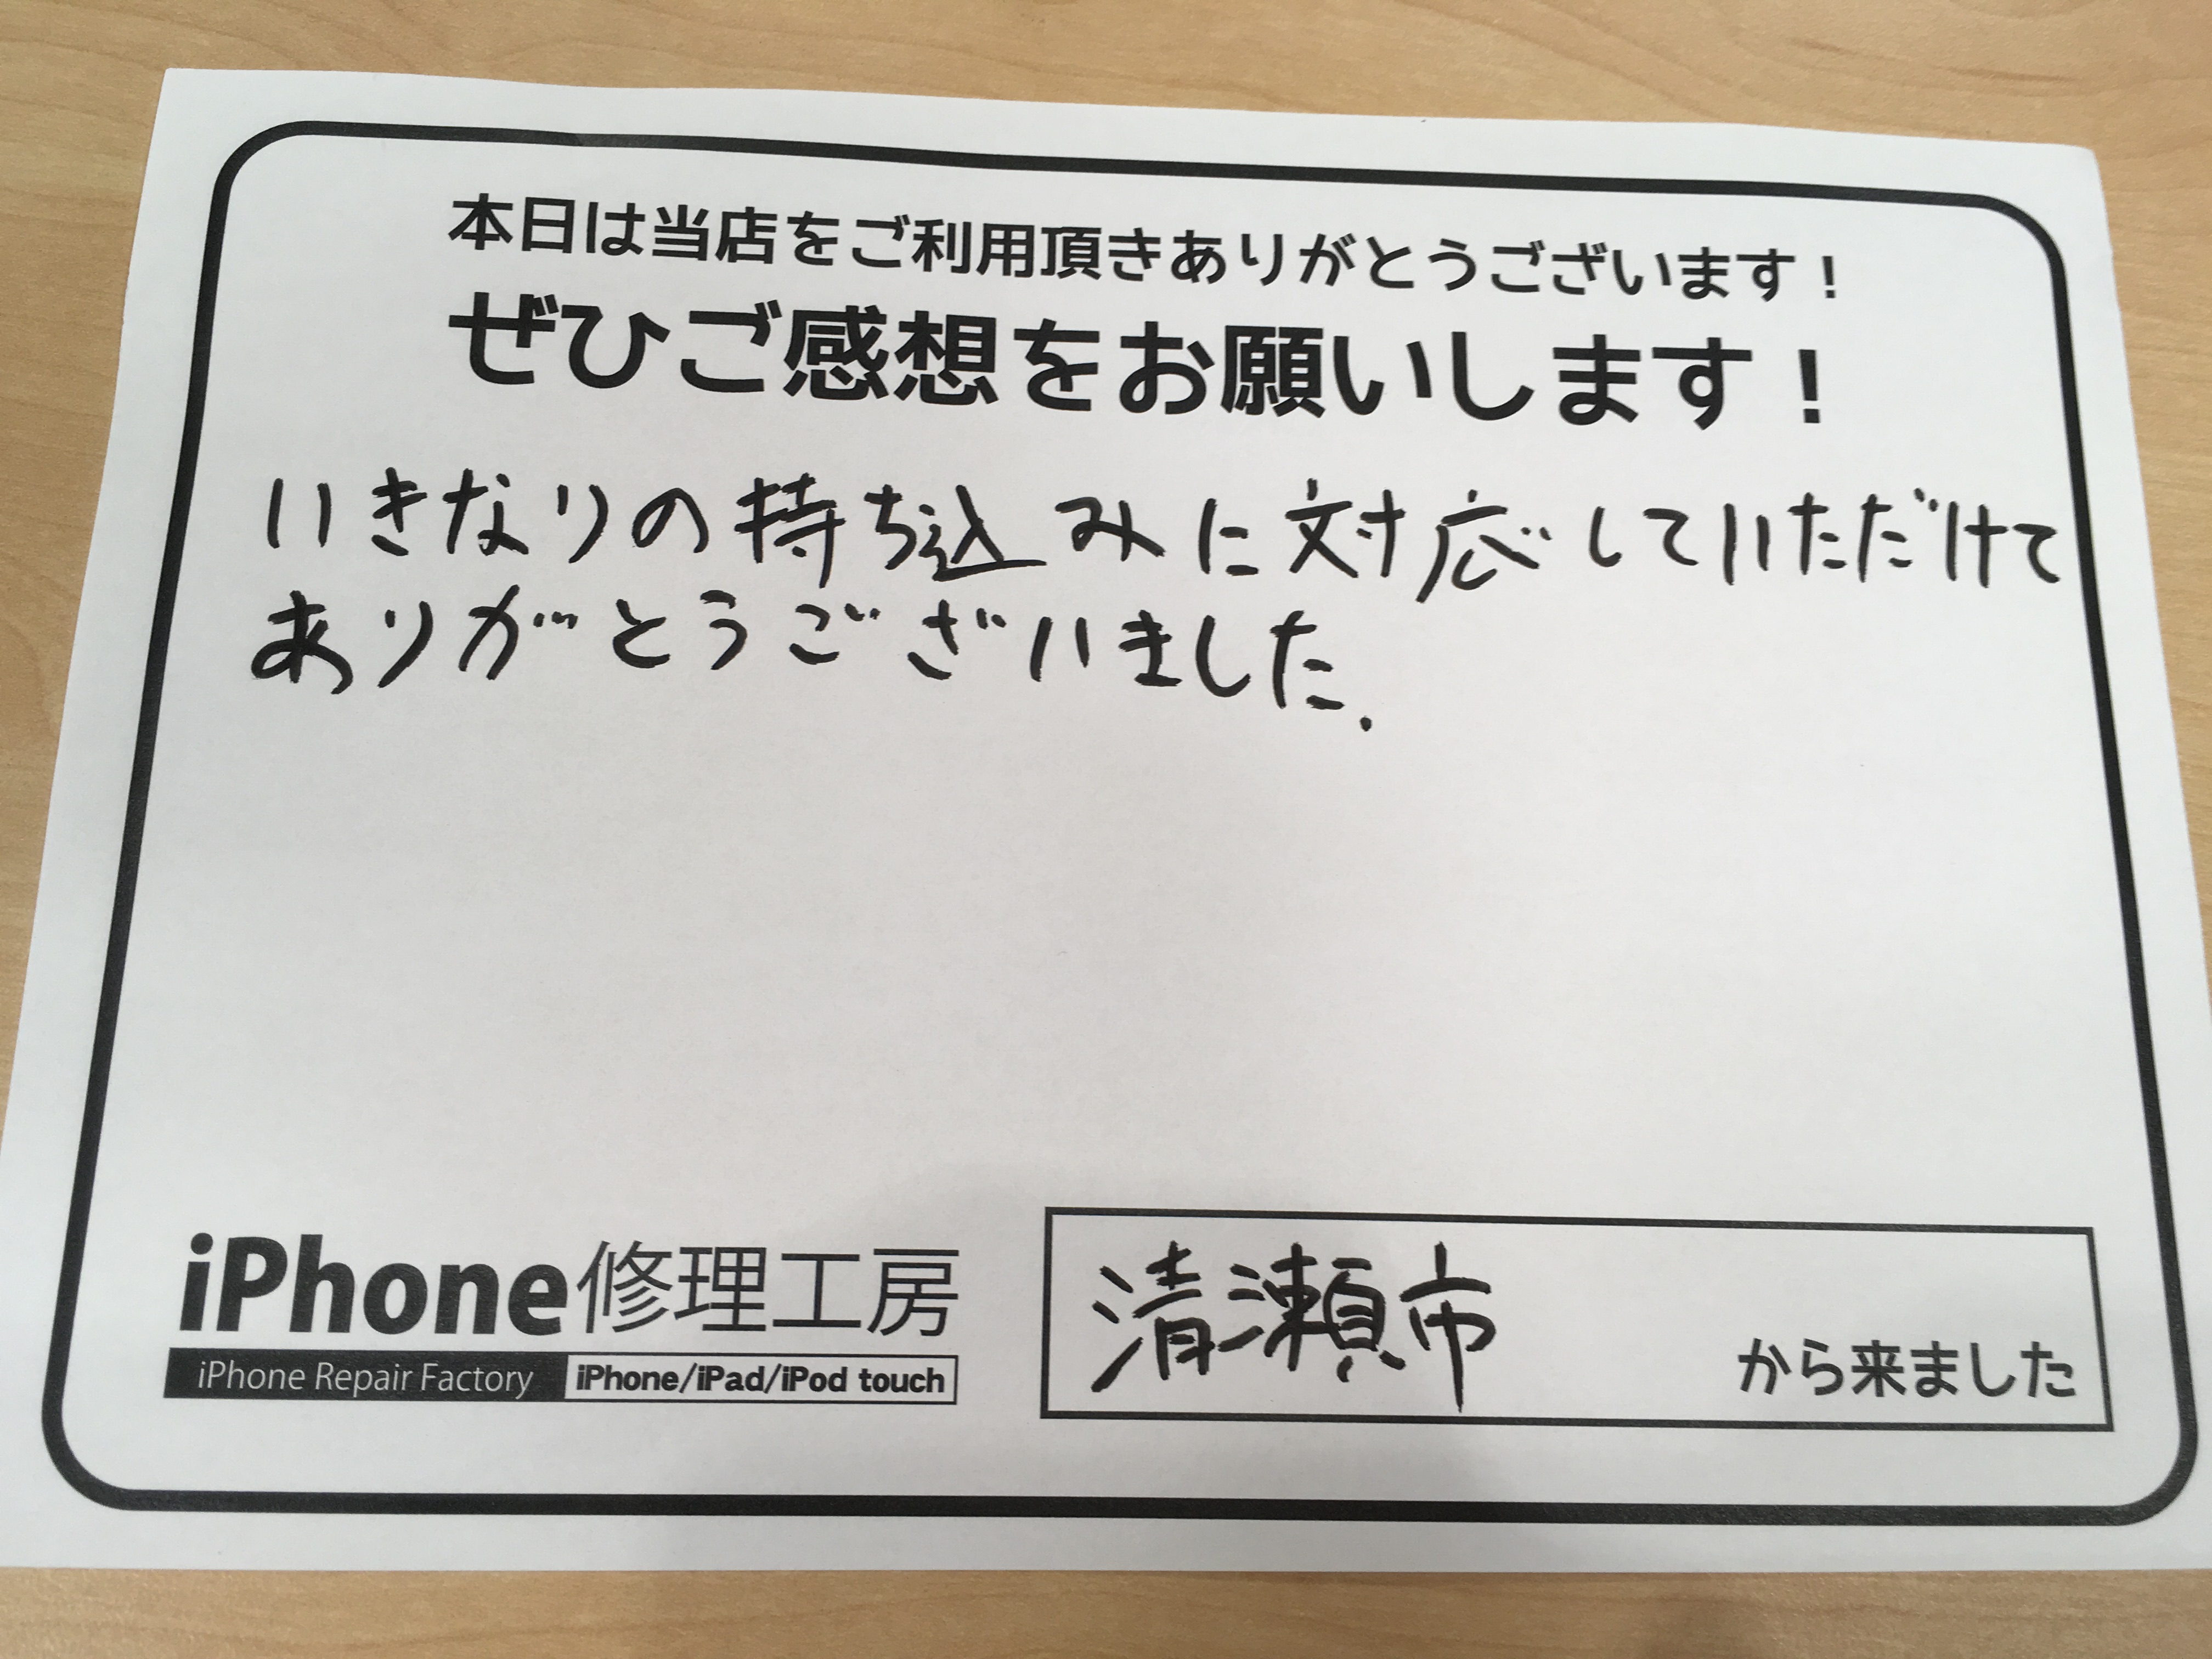 本日は当店をご利用頂きありがとうございます！
ぜひご感想をお願いします！
いきなりの持ち込みに対応していただけて
ありがとうございました.
iPhone修理工房
iPhone Repair Factory iPhone/iPad/iPod touch
清瀬市 から来ました